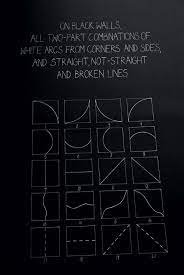 ON BLACK WALLS,
ALL TWO-PART COMBINATIONS OF
WHITE ARCS FROM CORNERS AND SIDES,
AND STRAIGHT, NOT-STRAIGHT
AND BROKEN LINES